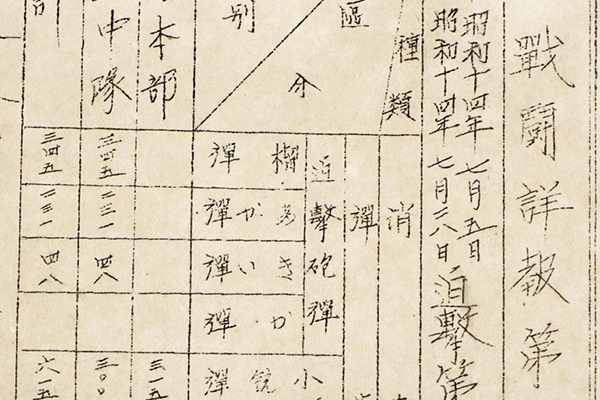 戰鬪詳報第
昭和十四年七月五日
昭和十四年七月二八日
迫擊第
種類
區分
別
消
彈
迫擊砲彈
榴彈
あか彈
きい彈
か彈
小銃彈
本部
三一五
中隊
三四五
二三一
四八
三〇〇
三四五
二三一
四八
六一五